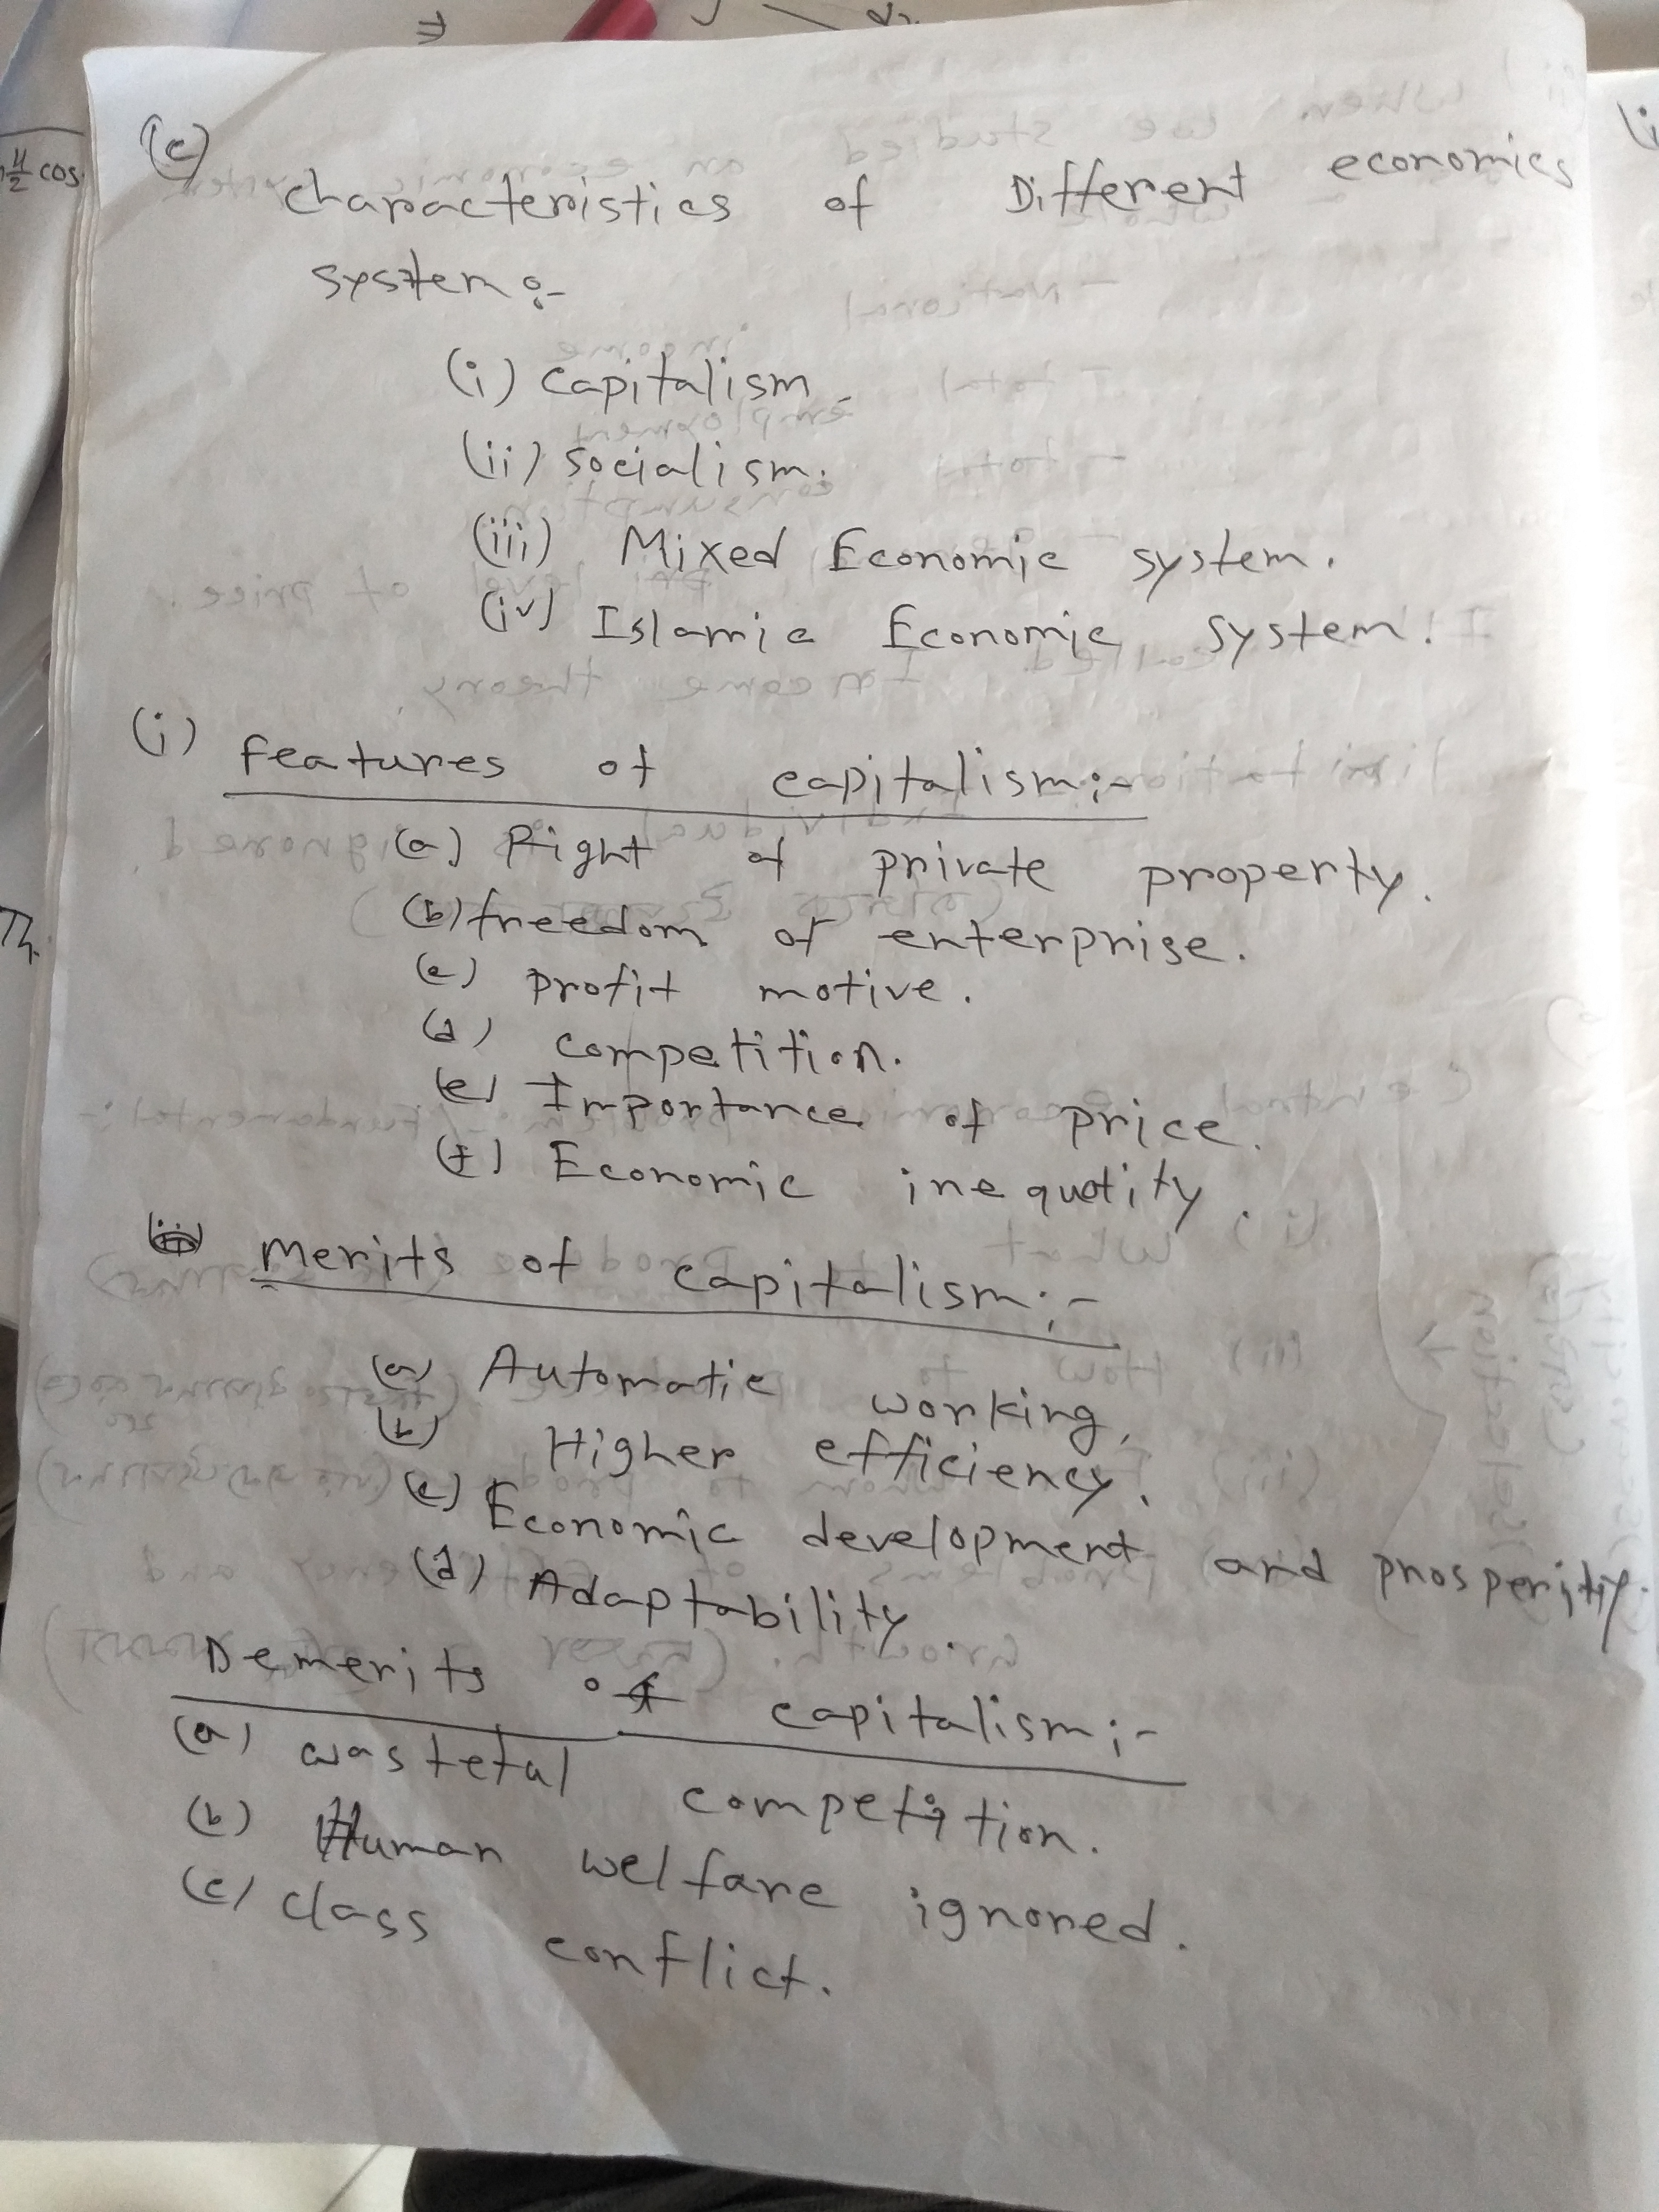 (c)
characteristics of Different economics
system :-
(i) capitalism.
(ii) socialism.
(iii) Mixed Economic system.
(iv) Islamic Economic system.
(i) features of capitalism:-
(a) Right of private property.
(b) freedom of enterprise.
(c) profit motive.
(d) competition.
(e) Importance of price.
(f) Economic inequality.
merits of capitalism:-
(a) Automatic working.
(b) Higher efficiency.
(c) Economic development and prosperity.
(d) Adaptability.
Demerits of capitalism:-
(a) wasteful competition.
(b) Human welfare ignored.
(c) class conflict.